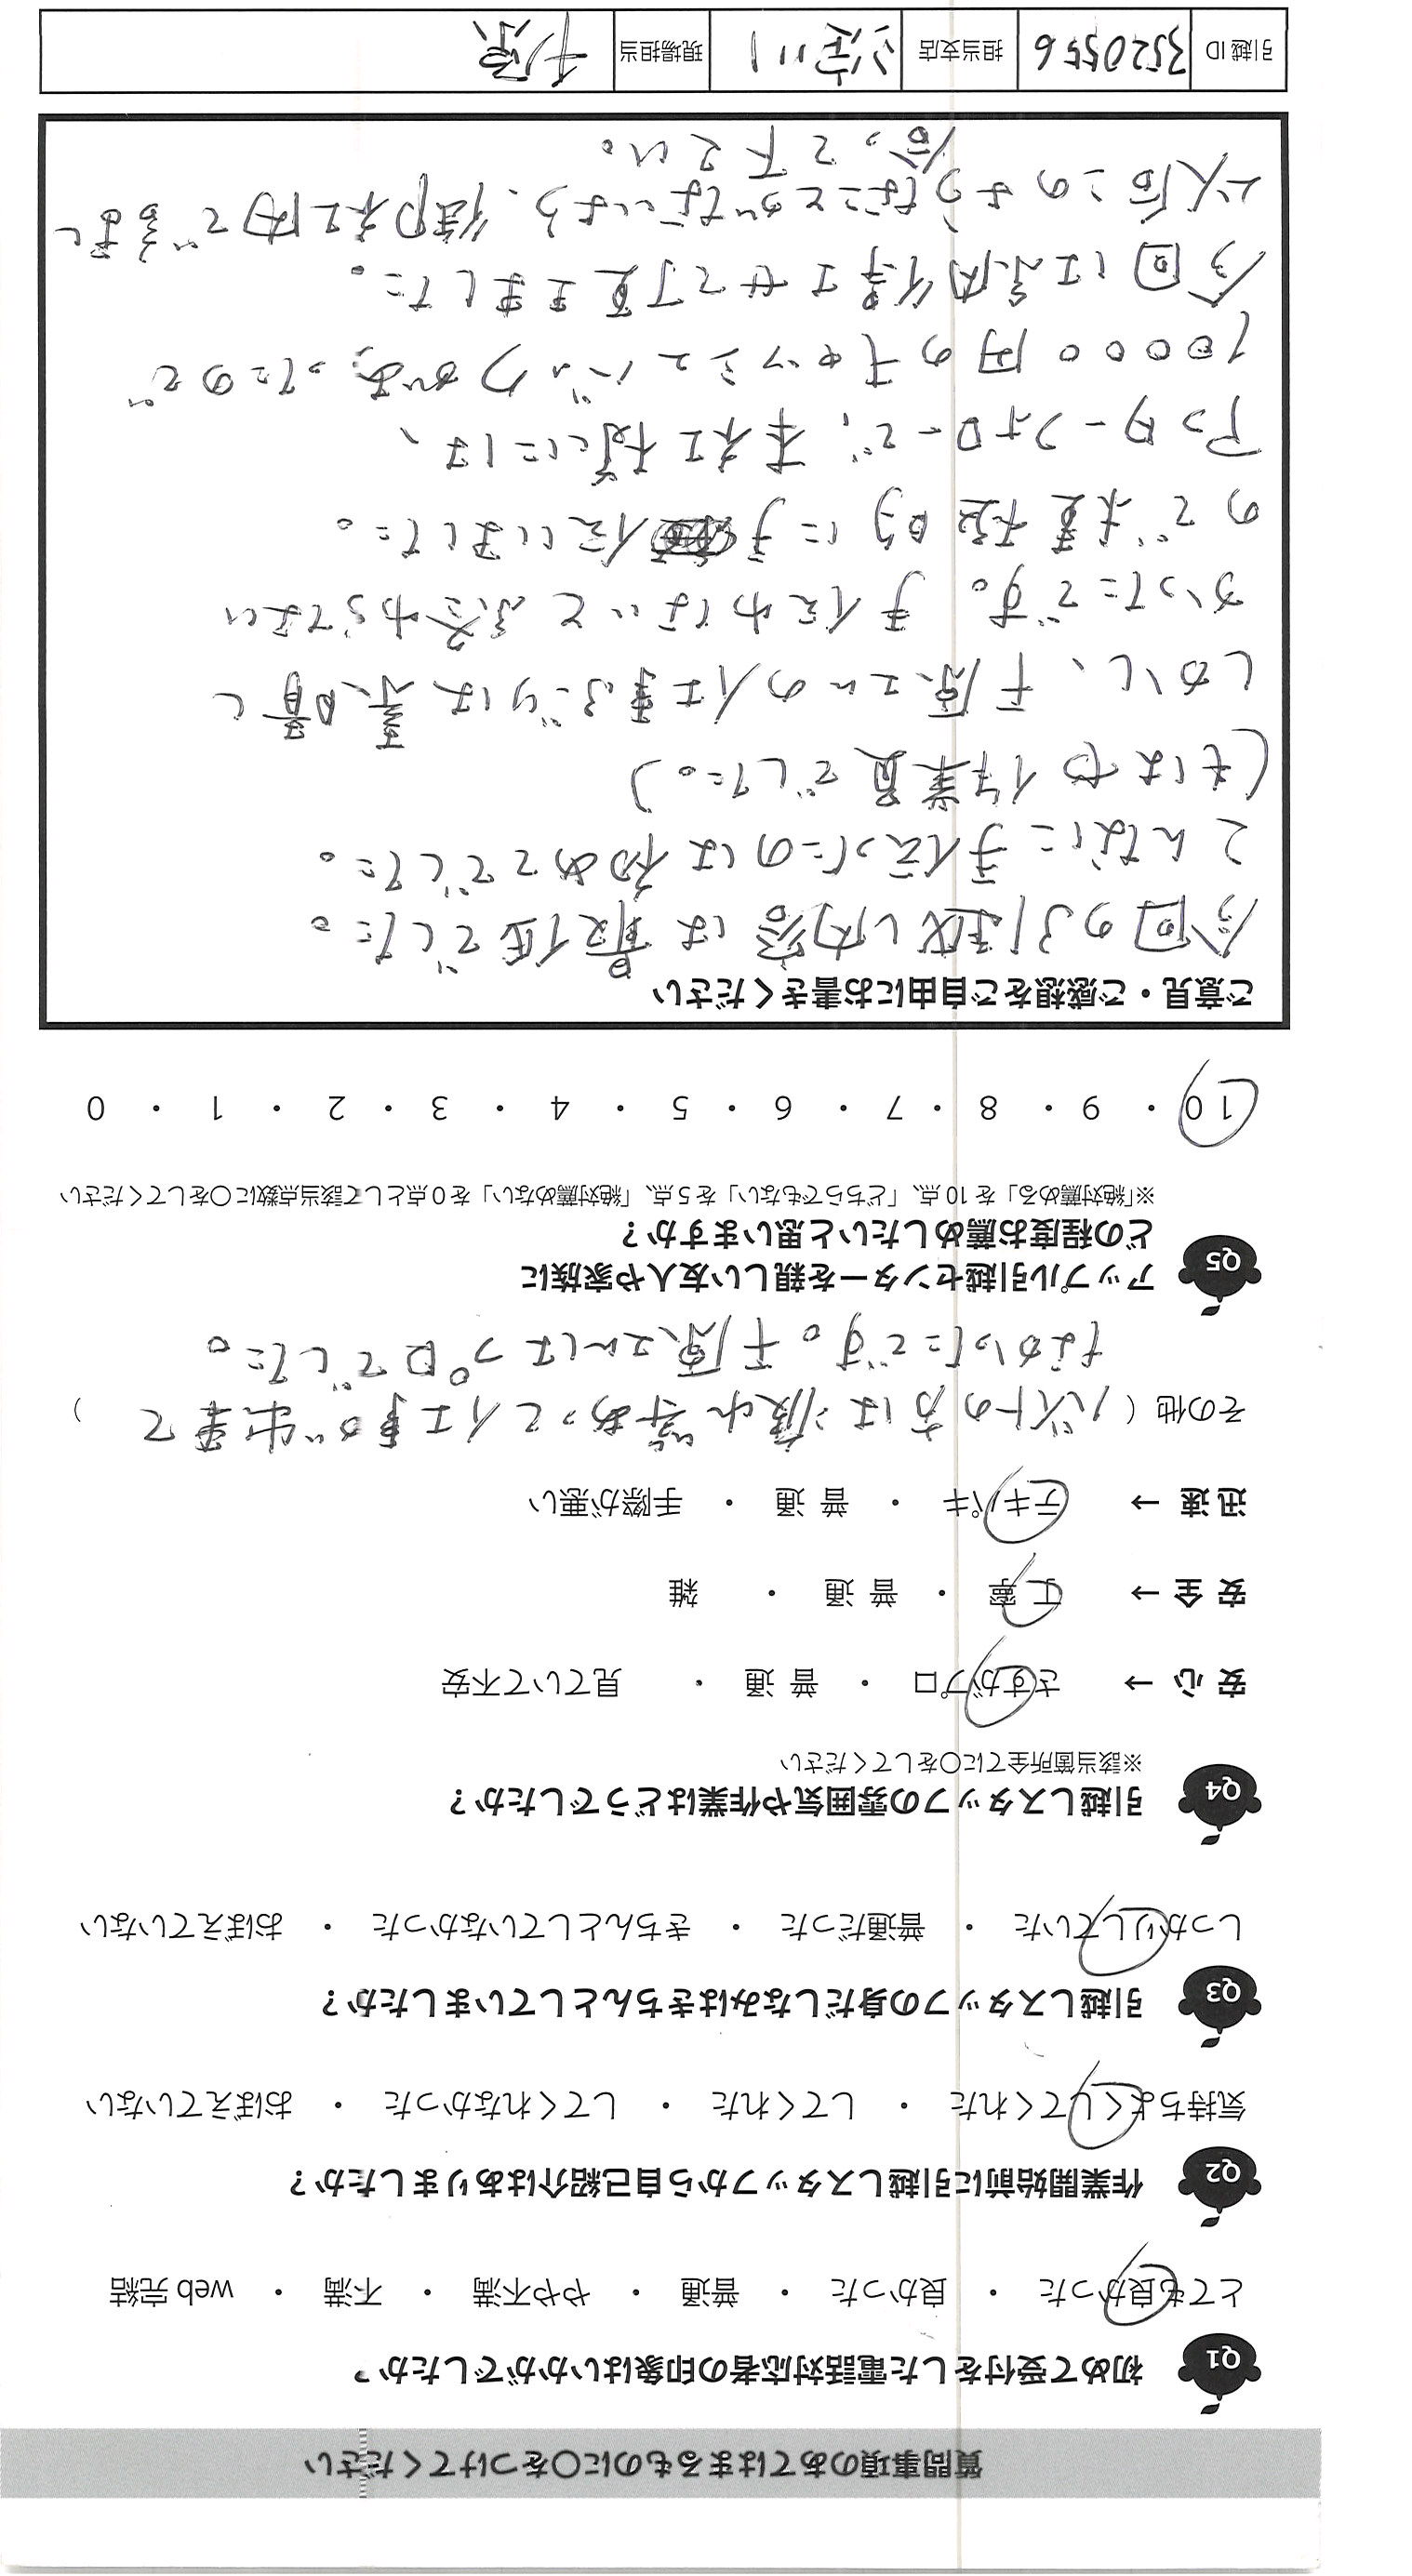 質問事項のあてはまるものに〇をつけてください
Q1 初めて受付をした電話対応者の印象はいかがでしたか?
とても良かった ・ 良かった ・ 普通 ・ やや不満 ・ 不満 ・ web 完結
Q2 作業開始前に引越しスタッフから自己紹介はありましたか?
気持ちよくしてくれた ・ してくれた ・ してくれなかった ・ おぼえていない
Q3 引越しスタッフの身だしなみはきちんとしていましたか?
しっかりしていた ・ 普通だった ・ きちんとしていなかった ・ おぼえていない
Q4 引越しスタッフの雰囲気や作業はどうでしたか?
※該当箇所全てに〇をしてください
安心→ さすがプロ ・ 普通 ・ 見ていて不安
安全→ 丁寧 ・ 普通 ・ 雑
迅速→ テキパキ ・ 普通 ・ 手際が悪い
その他 ( バイトの方は波や等あって仕事が出来て )
なかったです。千原さんはプロでした。
Q5 アップル引越センターを親しい友人や家族に
どの程度お薦めしたいと思いますか?
※「絶対薦める」を10点、「どちらでもない」を5点、「絶対薦めない」を0点として該当点数に〇をしてください
10 ・ 9 ・ 8 ・ 7 ・ 6 ・ 5 ・ 4 ・ 3 ・ 2 ・ 1 ・ 0
ご意見・ご感想をご自由にお書きください
今回の引越し内容は最低でした。
こんなに手伝ったのは初めてでした。
(もはや作業員でした。)
しかし、千原さんの仕事ぶりは素晴し
かったです。手伝わないと終わらない
ので積極的に手伝いました。
アフターフォローで、本社様には、
10000円のキャッシュバックがあったので
今回は納得させて頂きました。
以後このようなことがないよう、御社内で話し
合って下さい。
引越ID 3520556 担当支店 淀川 現場担当 千原